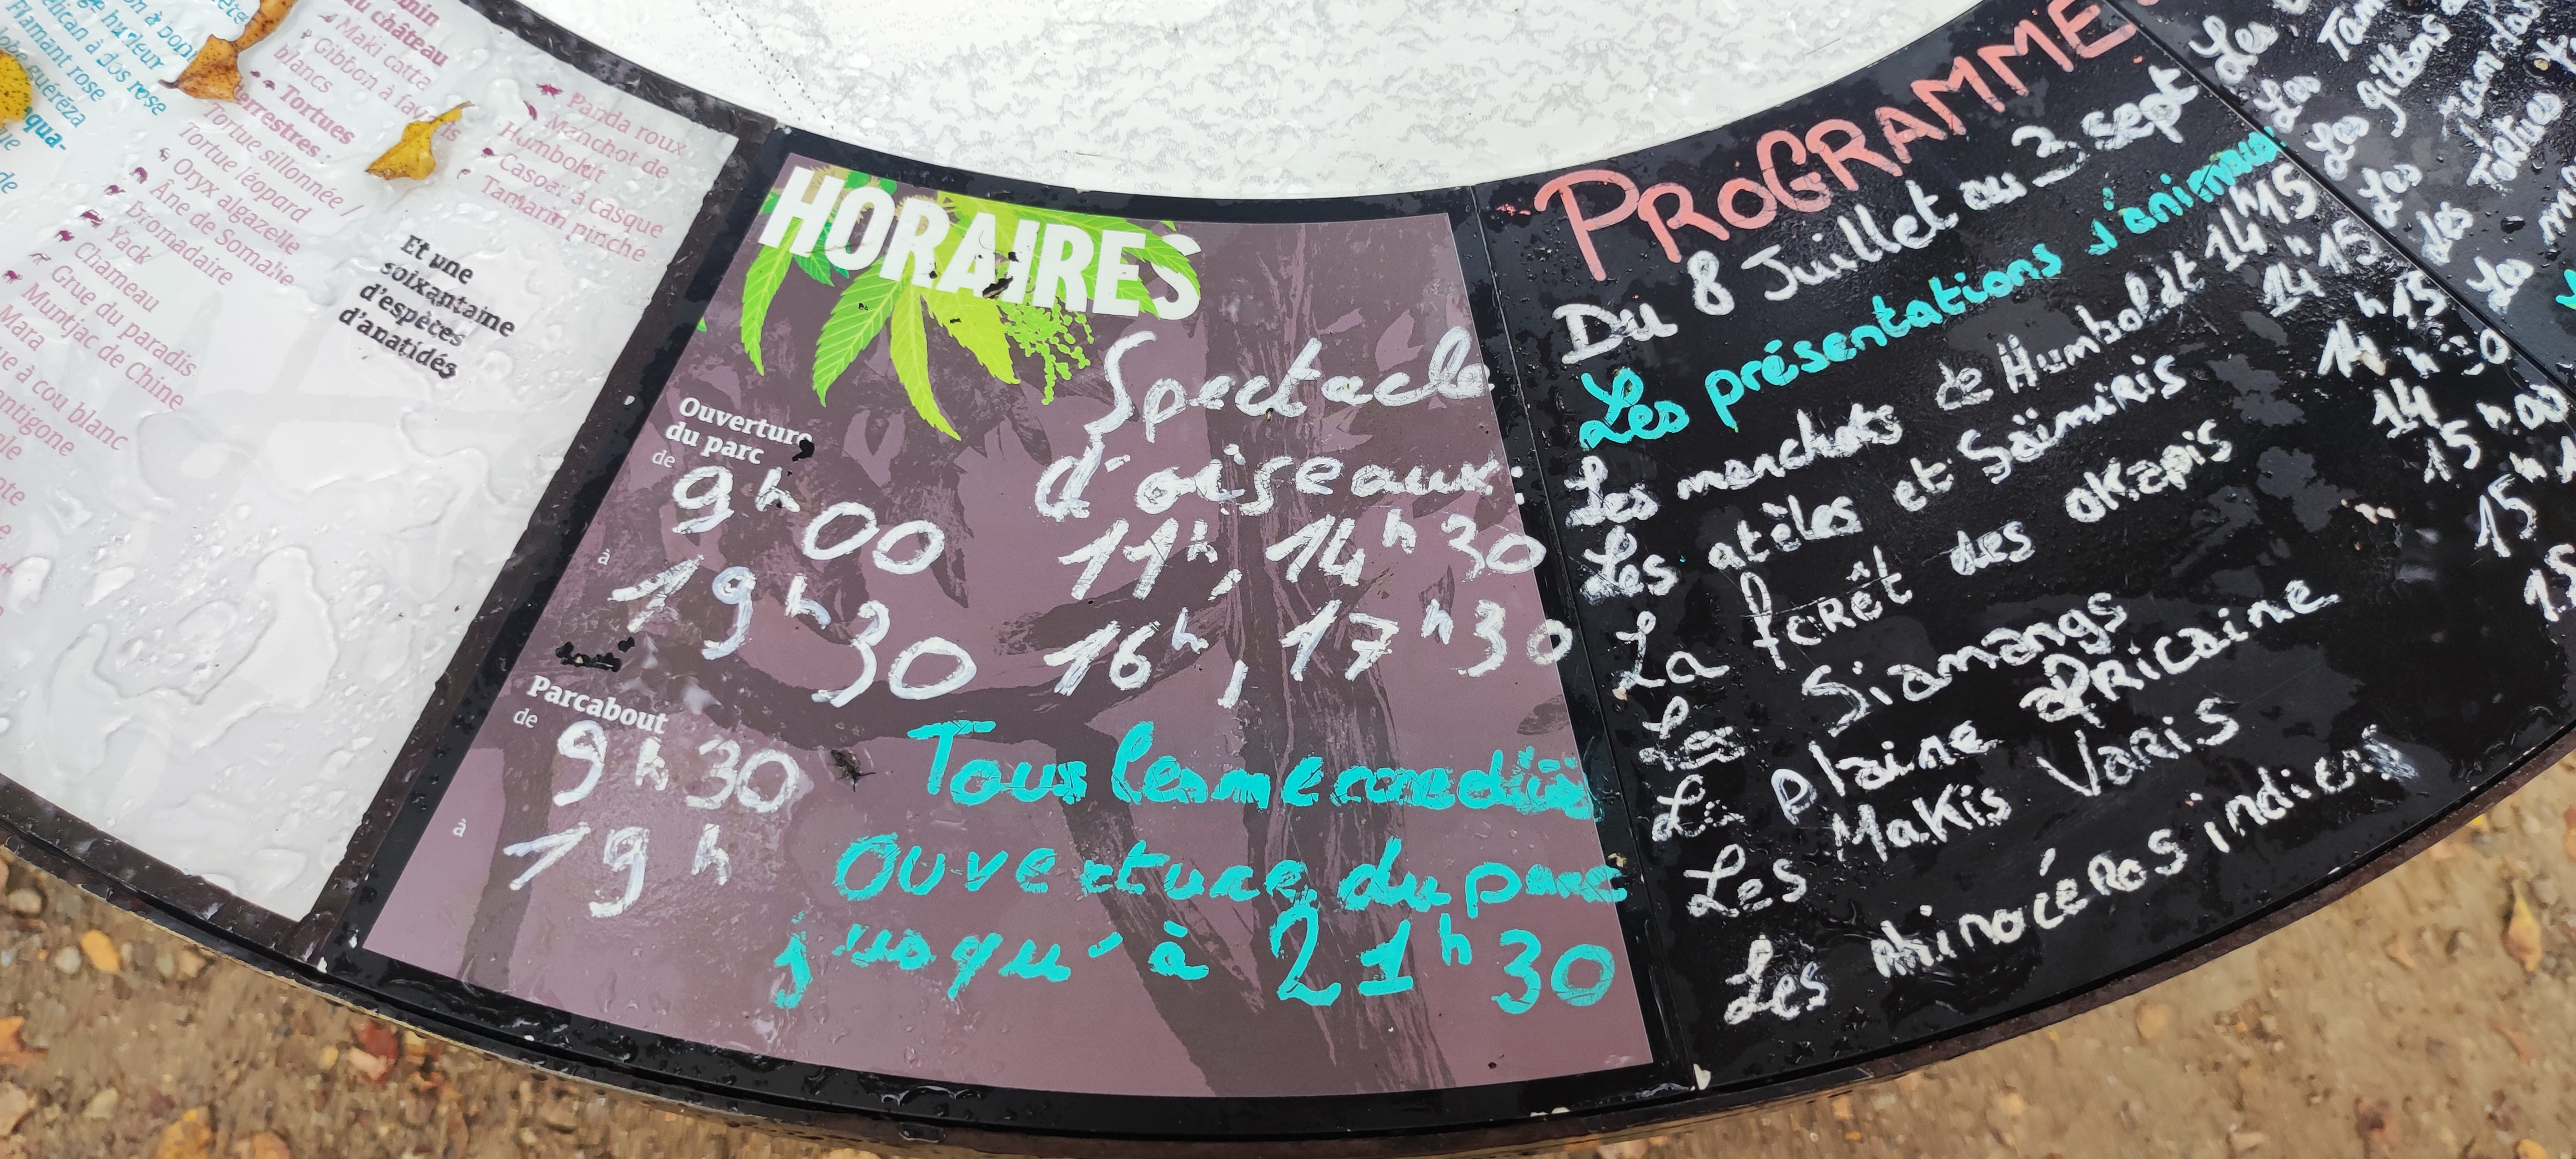 Flamant rose
guéréza
à dos rose
qua-
de
au château
Maki catta
Gibbon à
blancs
Tortues
terrestres :
Tortue sillonnée /
Tortue léopard
Oryx algazelle
Âne de Somalie
Dromadaire
Yack
Chameau
Grue du paradis
Muntjac de Chine
Mara
à cou blanc
Panda roux
Manchot de
Humboldt
Casoar à casque
Tamarin pinché
Et une
soixantaine
d'espèces
d'anatidés
HORAIRES
Ouverture
du parc
de
9h00
à
19h30
Parcabout
de
9h30
à
19h
Spectacle
d'oiseaux:
11h, 14h30
16h, 17h30
Tous les mercredis
Ouverture du parc
jusqu'à 21h30
PROGRAMME
Du 8 Juillet au 3 sept
Les présentations d'animaux
Les manchots de Humboldt 14h15
Les atèles et Saïmiris 14h15
La forêt des okapis 14h15
Les Siamangs
La plaine africaine
Les Makis Varis
Les rhinocéros indiens
Les
Les gibbons
Les
Tortues
Les
Les